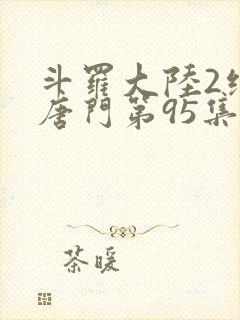 斗羅大陸2
唐門第95集
茶暖